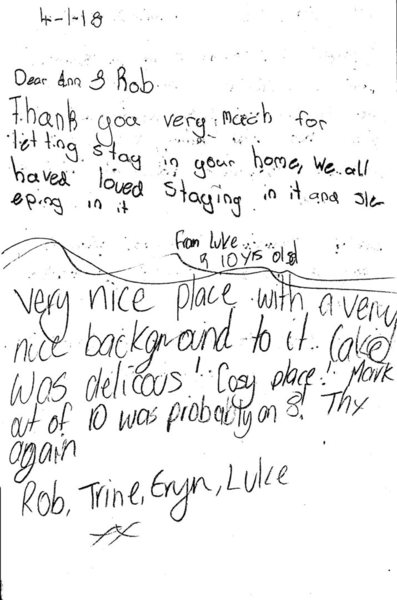 4-1-18
Dear Ann & Rob
Thank you very match for
letting stay in your home, We all
haved loved staying in it and sle
eping in it
from Luke
10 yrs old
very nice place with a very
nice background to it. Cake
was delicous! Cosy place! Mark
out of 10 was probably an 8! Thx
again
Rob, Trine, Eryn, Luke
xx